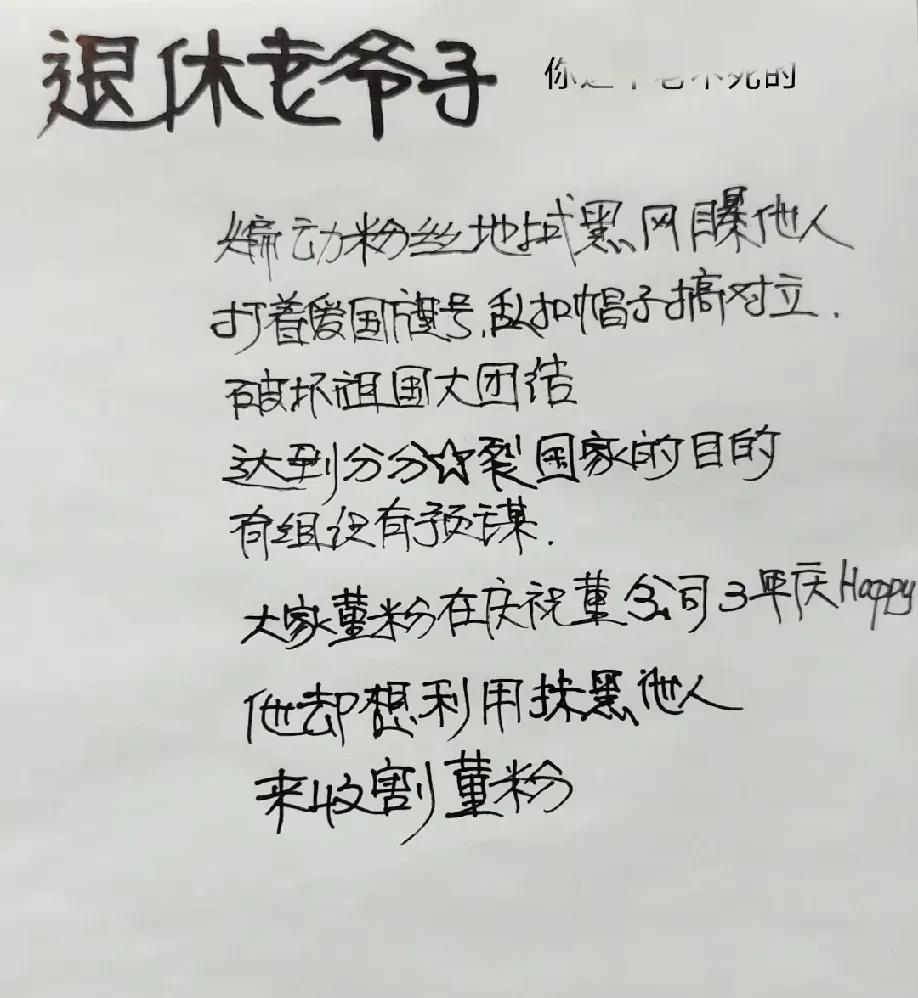 退休老爷子 你 死的
煽动粉丝地域黑网曝他人
打着爱国旗号,乱扣帽子搞对立.
破坏祖国大团结
达到分分☆裂国家的目的
有组织有预谋.
大家董粉在庆祝董公司3年庆Happy
他却想利用抹黑他人
来收割董粉